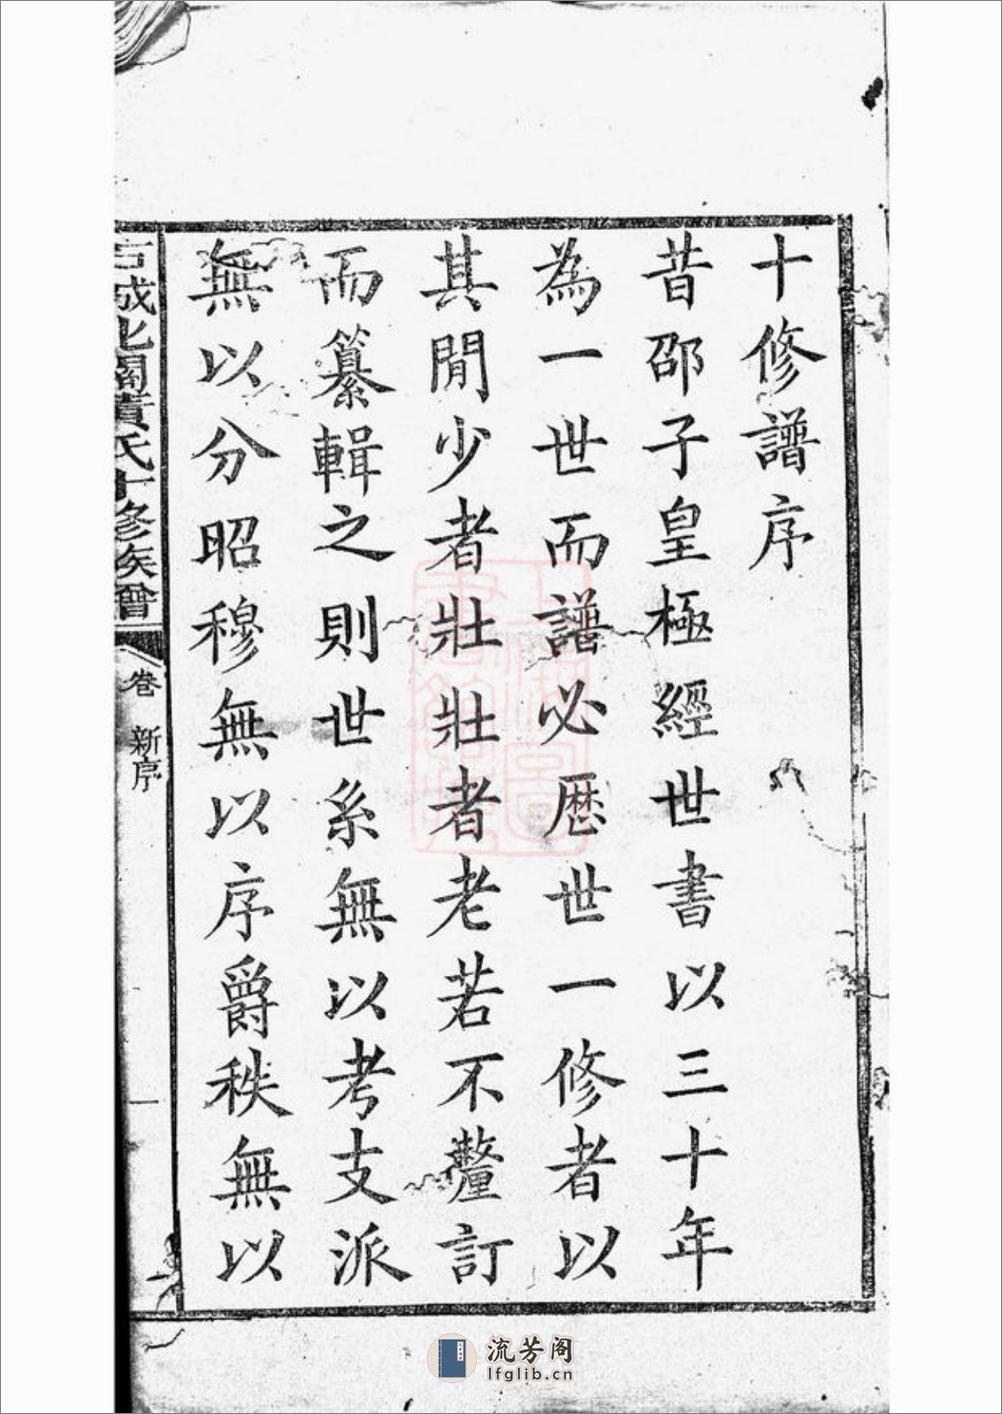 十修譜序
昔邵子皇極經世書以三十年
為一世而譜必歴世一修者以
其閒少者壯壯者老若不釐訂
而纂輯之則世系無以考支派
無以分昭穆無以序爵秩無以
成北閣黃氏十修族譜
卷 新序
一
流芳阁
lfglib.cn